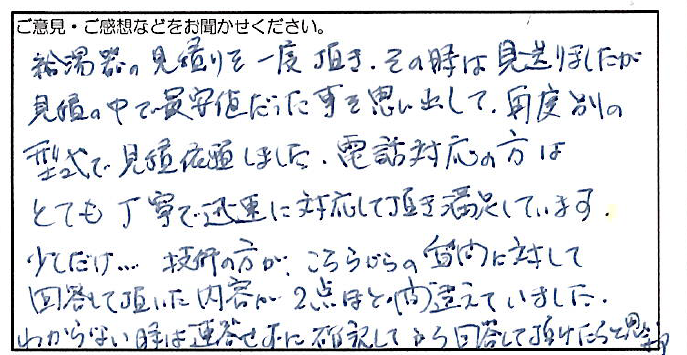 ご意見・ご感想などをお聞かせください。
給湯器の見積りを一度頂き、その時は見送りましたが
見積の中で最安値だった事を思い出して、再度別の
型式で見積依頼しました。電話対応の方は
とても丁寧で迅速に対応して頂き満足しています。
少しだけ… 技術の方が、こちらからの質問に対して
回答して頂いた内容が2点ほど間違えていました。
わからない時は速答せずに確認してから回答して頂けたらと思